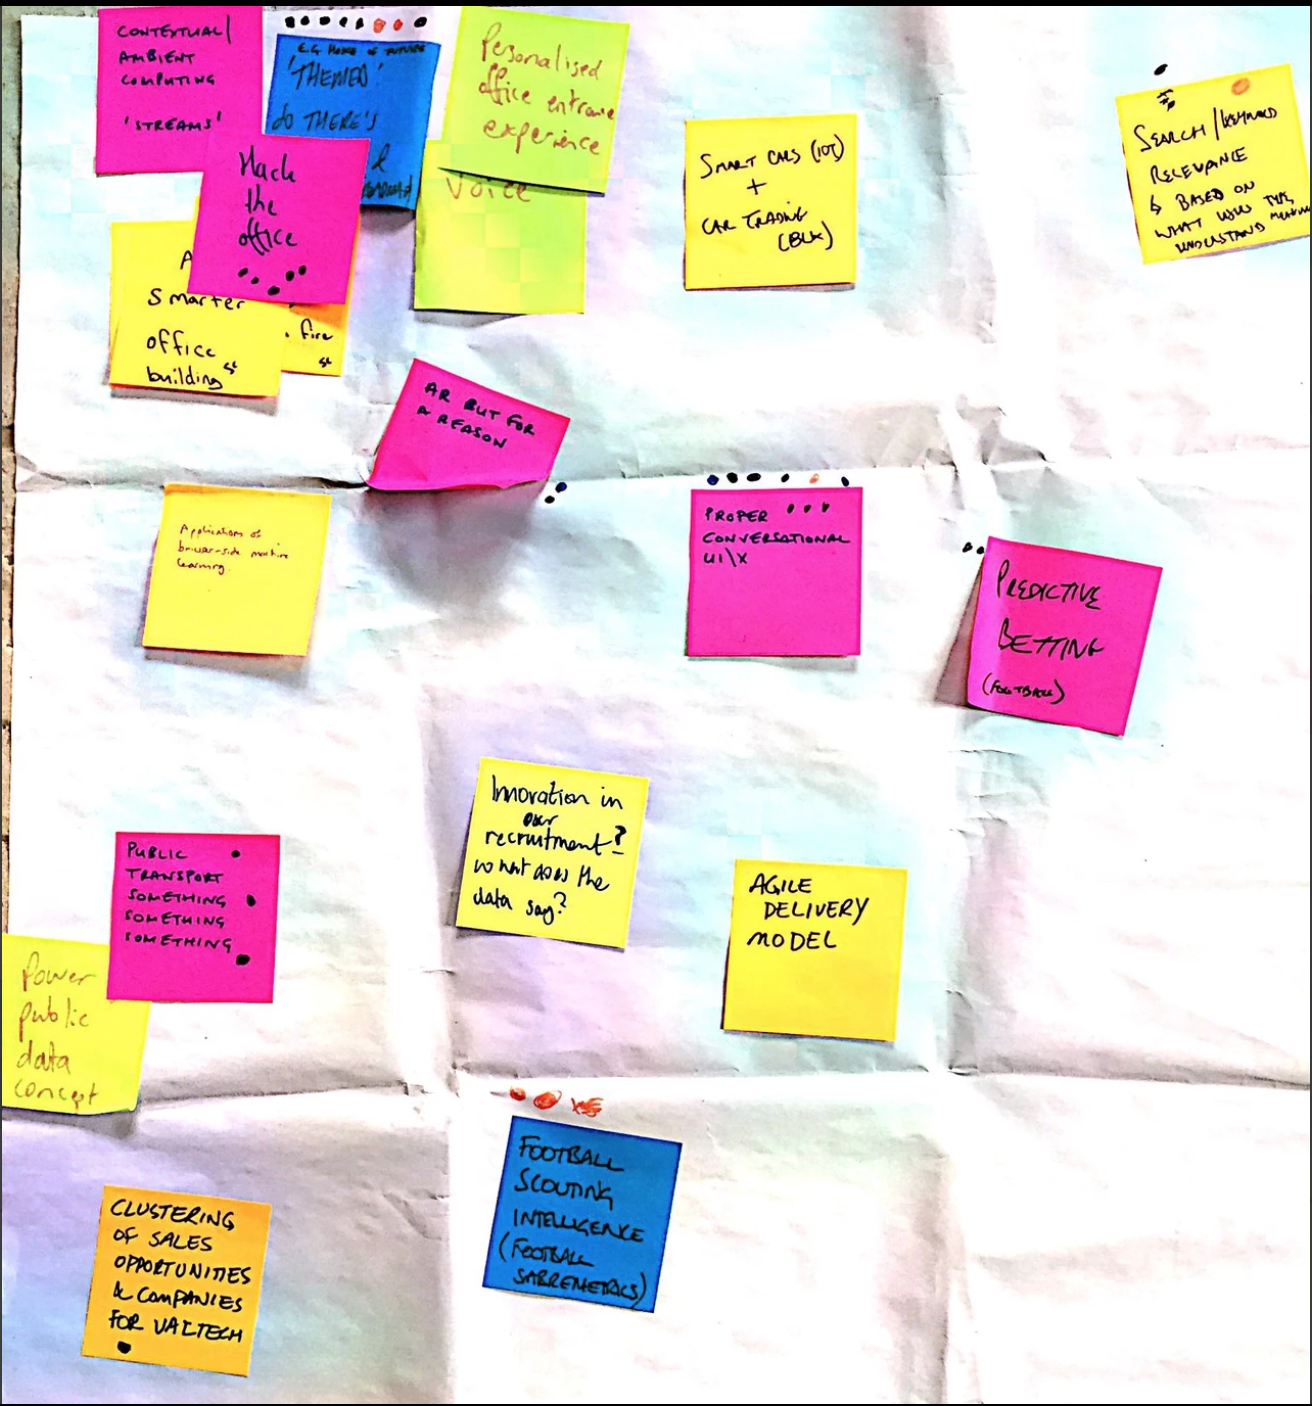 CONTEXTUAL/
AMBIENT
COMPUTING
'STREAMS'
E.G. HOME OF FUTURE
'THEMED'
do THERE'S
Personalised
office entrance
experience
Voice
Hack
the
office
A
Smarter
office
building
fire
SMART CARS (IOT)
+
CAR TRADING
(BLK)
SEARCH/KEYWORD
RELEVANCE
↳ BASED ON
WHAT USER TYPE
UNDERSTAND
AR BUT FOR
A REASON
Applications of
browser-side machine
learning.
PROPER
CONVERSATIONAL
UI\X
PREDICTIVE
BETTING
(FOOTBALL)
Innovation in
our
recruitment?
what does the
data say?
AGILE
DELIVERY
MODEL
PUBLIC
TRANSPORT
SOMETHING
SOMETHING
SOMETHING
Power
public
data
concept
FOOTBALL
SCOUTING
INTELLIGENCE
(FOOTBALL
SABREMETRICS)
CLUSTERING
OF SALES
OPPORTUNITIES
& COMPANIES
FOR VALTECH